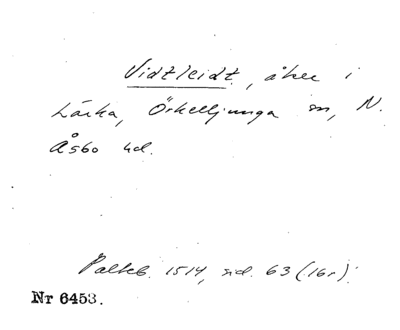 Vidtleidt, åker i
Lärka, Örkelljunga sn, N.
Åsbo hd.
Palteb. 1514, sid. 63 (16r).
Nr 6453.